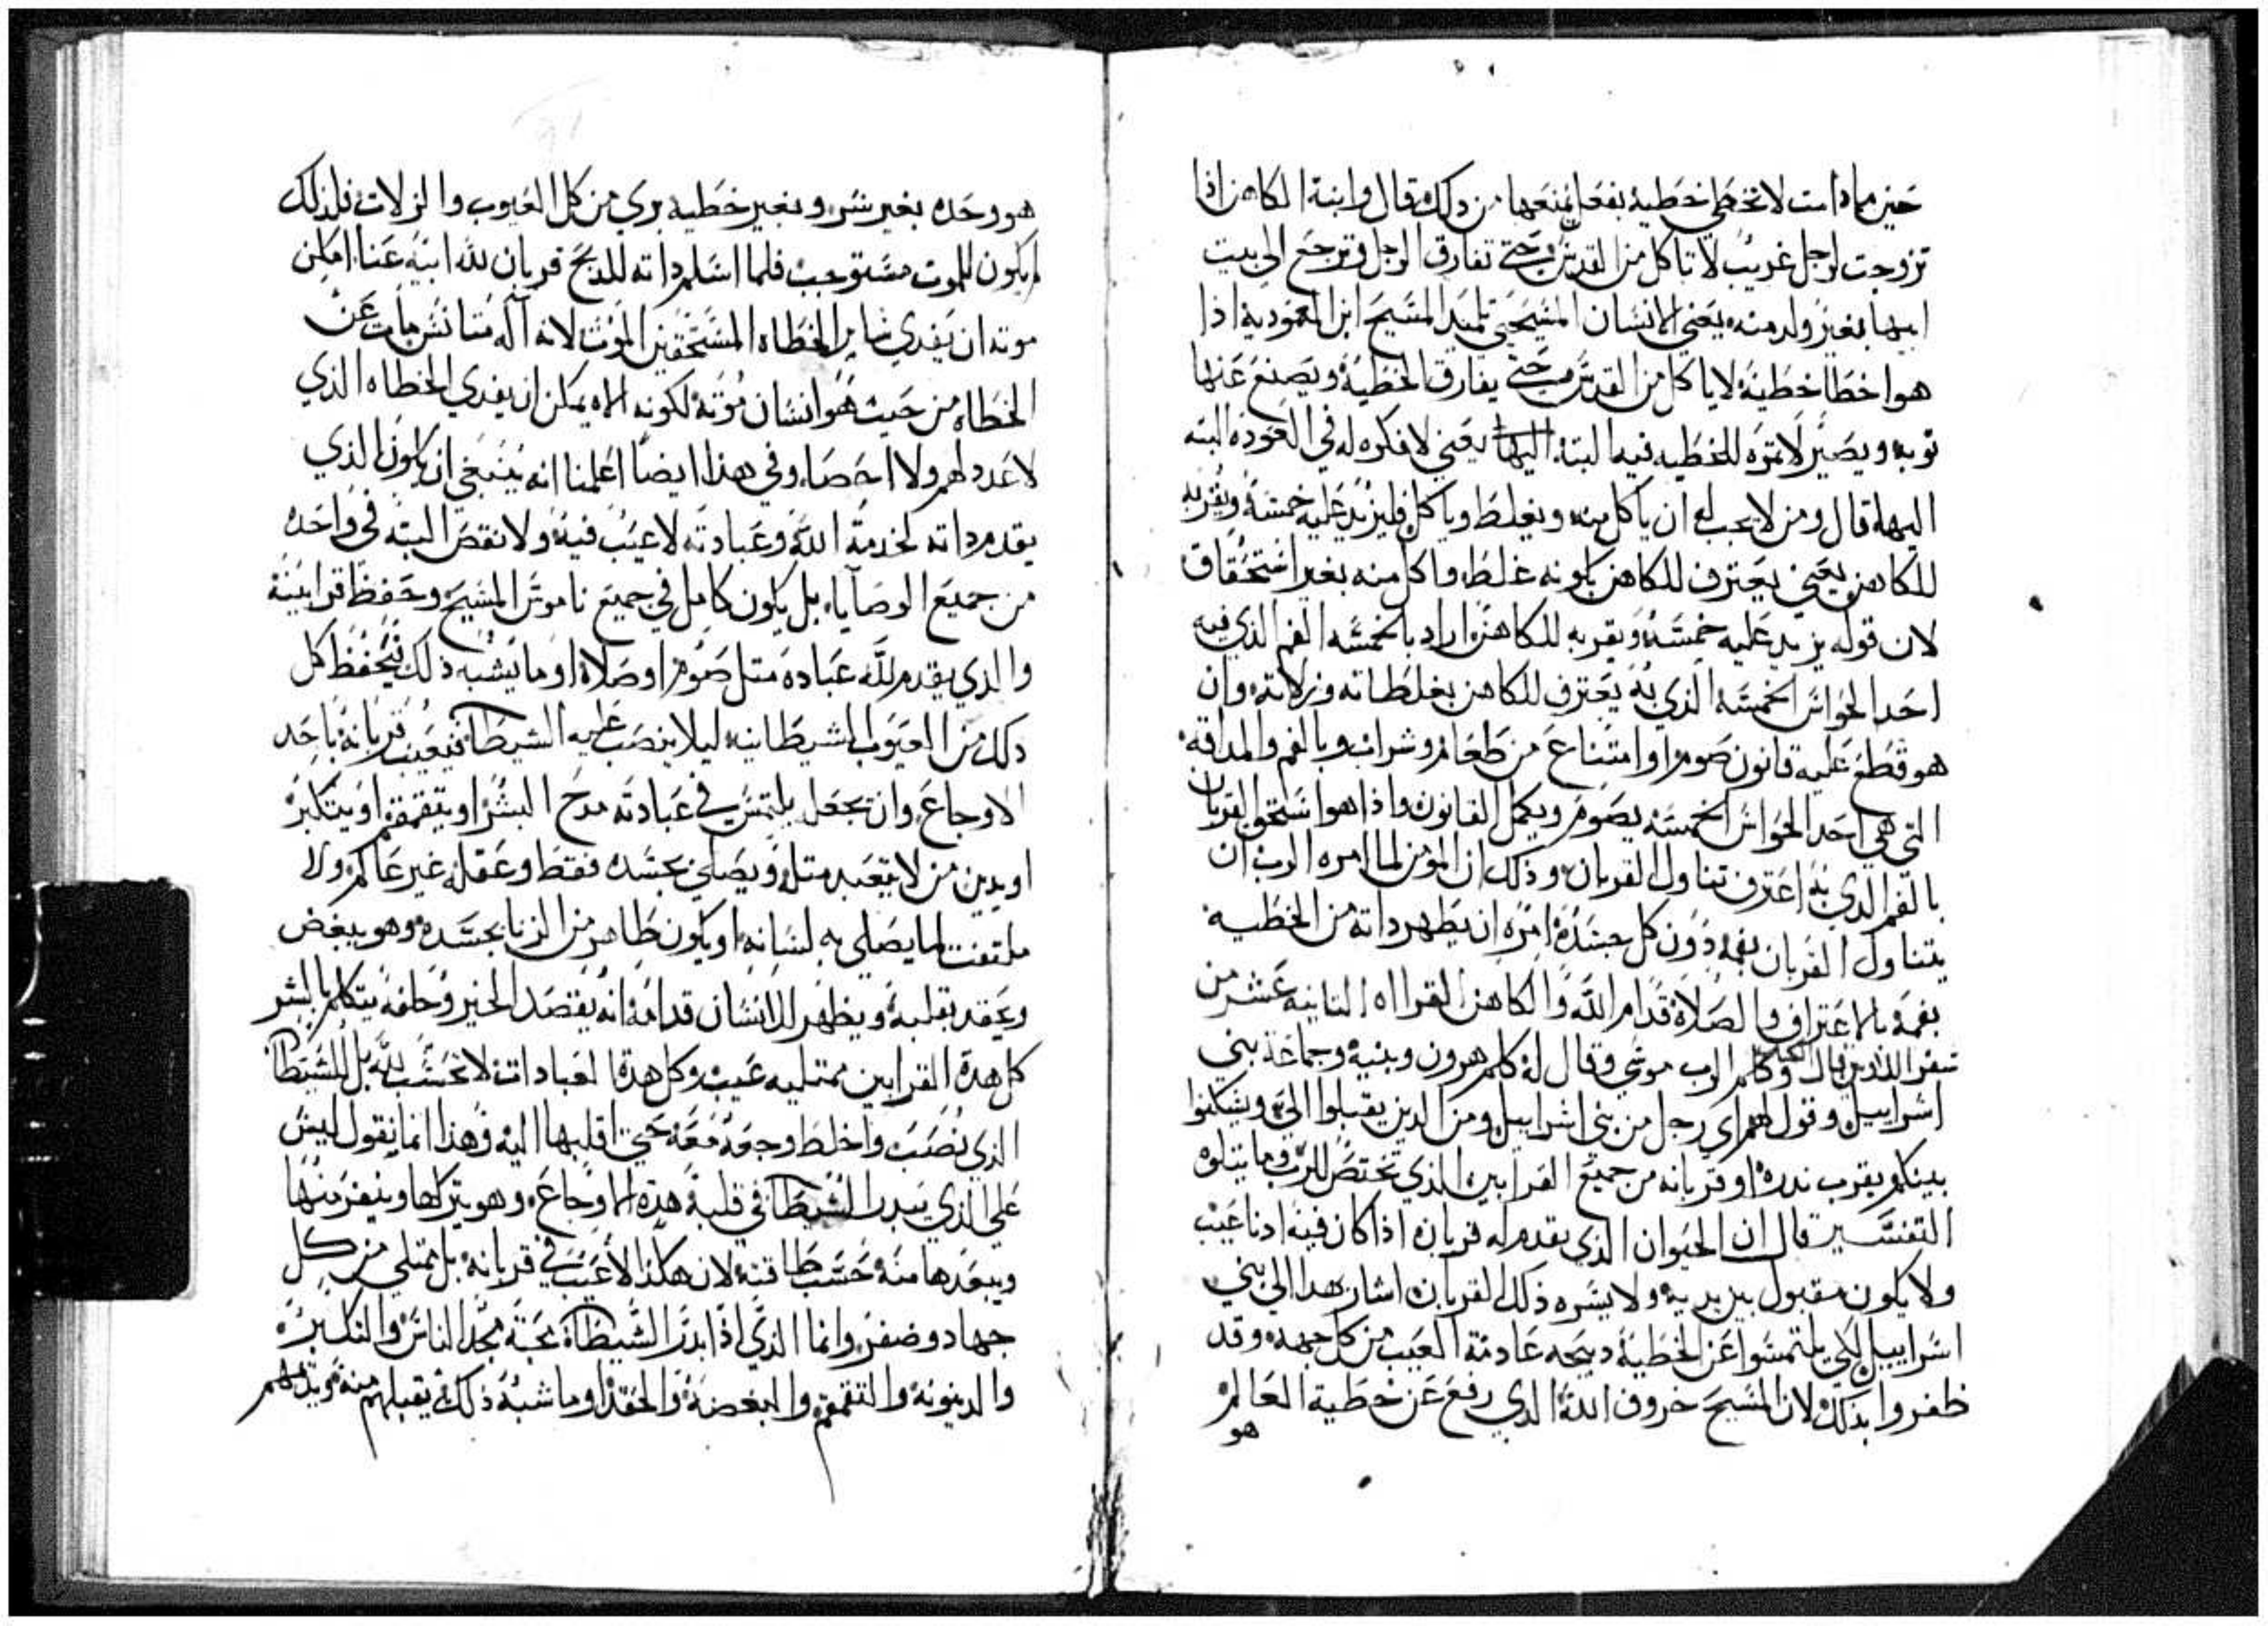 حين مادامت لا تخطي خطية بفعل يمنعها من ذلك قال وابنة الكاهن اذا
تزوجت لرجل غريب لا تاكل من القدس حتي تفارق الرجل وترجع الي بيت
ابيها بغير ولد منه يعني الانسان المسيحي تلميد المسيح ابن المعمودية اذا
هو اخطا خطية لا ياكل من القدس حتي يفارق الخطية ويصنع عنها
توبه ويصير لا تمره للخطيه فيه البتة يعني لا فكره له في العوده البته
اليها قال ومن لا يجب له ان ياكل منه ويغلط وياكل فليزيد عليه خمسه ويقر به
للكاهن يعني يعترف للكاهن بكونه غلط واكل منه بغير استحقاق
لان قوله يزيد عليه خمسه ويقر به للكاهن اراد بالخمسه الفم الذي فيه
احد الحواس الخمسه الذي به يعترف للكاهن بغلطاته وزلاته وان
هو قطع عليه قانون صوم او امتناع من طعام وشراب وبالفم والمداقه
التي هي احد الحواس الخمسه يصوم ويكمل القانون واذا هو استحق القربان
بالفم الدي به اعترف تناول القربان وذلك ان المومن لما امره الرب ان
يتناول القربان بفمه دون كل جسده امره ان يطهر داته من الخطيه
بفمه بالاعتراف والصلاة قدام الله والكاهن القرااه التانيه عشر من
سفر اللاويين قال وكلم الرب موسي وقال له كلم هرون وبنيه وجماعة بني
اسراييل وقول لهم اي رجل من بني اسراييل ومن الدين يقبلوا الي ويسكنوا
بينكم يقرب ندره او قربانه من جميع القرابين الذي تختص للرب وما يتلوه
التفسير قال ان الحيوان الذي يقدم له قربان اذا كان فيه ادنا عيب
ولا يكون مقبول بين يديه ولا يسره ذلك القربان اشار بهدا الي بني
اسراييل لكي يلتمسوا عن الخطية دبيحه عادمة العيب من كل جهه وقد
ظفروا بدلك لان المسيح خروف الله الدي رفع عن خطية العالم
هو
هو وحده بغير شر وبغير خطيه بري من كل العيوب والزلات فلذلك
لم يكون للموت مستوجب فلما اسلم داته للدبح قربان لله ابيه عنا امكن
موته ان يفدي ساير الخطاه المستحقين الموت لانه اله متانس مات عن
الخطاه من حيث هو انسان موته لكونه الاه يمكن ان يفدي الخطاه الذي
لا عدد لهم ولا احصا وفي هذا ايضا اعلمنا انه ينبغي ان يكون الذي
يقدم داته لخدمة الله وعبادته لا عيب فيه ولا نقص البته في واحده
من جميع الوصايا بل يكون كامل في جميع ناموس المسيح وحفظ قرابينه
والدي يقدم لله عباده متل صوم او صلاة او ما يشبه ذلك يتحفظ كل
دلك من العيوب الشيطانيه ليلا ينصب عليه الشيطان فيعيب قربانه باحد
الاوجاع وان يجعل يلتمس في عبادته مدح البشر او يتقمقم او يتكبر
او يدين من لا يتعبد متله ويصلي بجسده فقط وعقله غير عالم ولا
ملتفت لما يصلي به لسانه او يكون طاهر من الزنا بجسده وهو يبغض
ويحقد بقلبه ويظهر للانسان قدامه انه يقصد الخير وخلفه يتكلم بالشر
كل هدة القرابين ممتليه عيب وكل هدة العبادات لا تحسب لله بل للشيطان
الذي نصب واخلط وجعه معه حتي اقلبها اليه وهذا انما يقول ليس
علي الذي يبدر الشيطان في قلبه هده الاوجاع وهو يتركها وينفر منها
ويبعدها منه حسب طاقته لان هكذا لا عيب في قربانه بل ممتلي من كل
جهاد وضفر وانما الذي اذا بدر الشيطان محبة مجد الناس والتكبر
والدينونة والتقمقم والبغضه والحقد او ما شبه ذلك يقبلهم منه ويتمهم